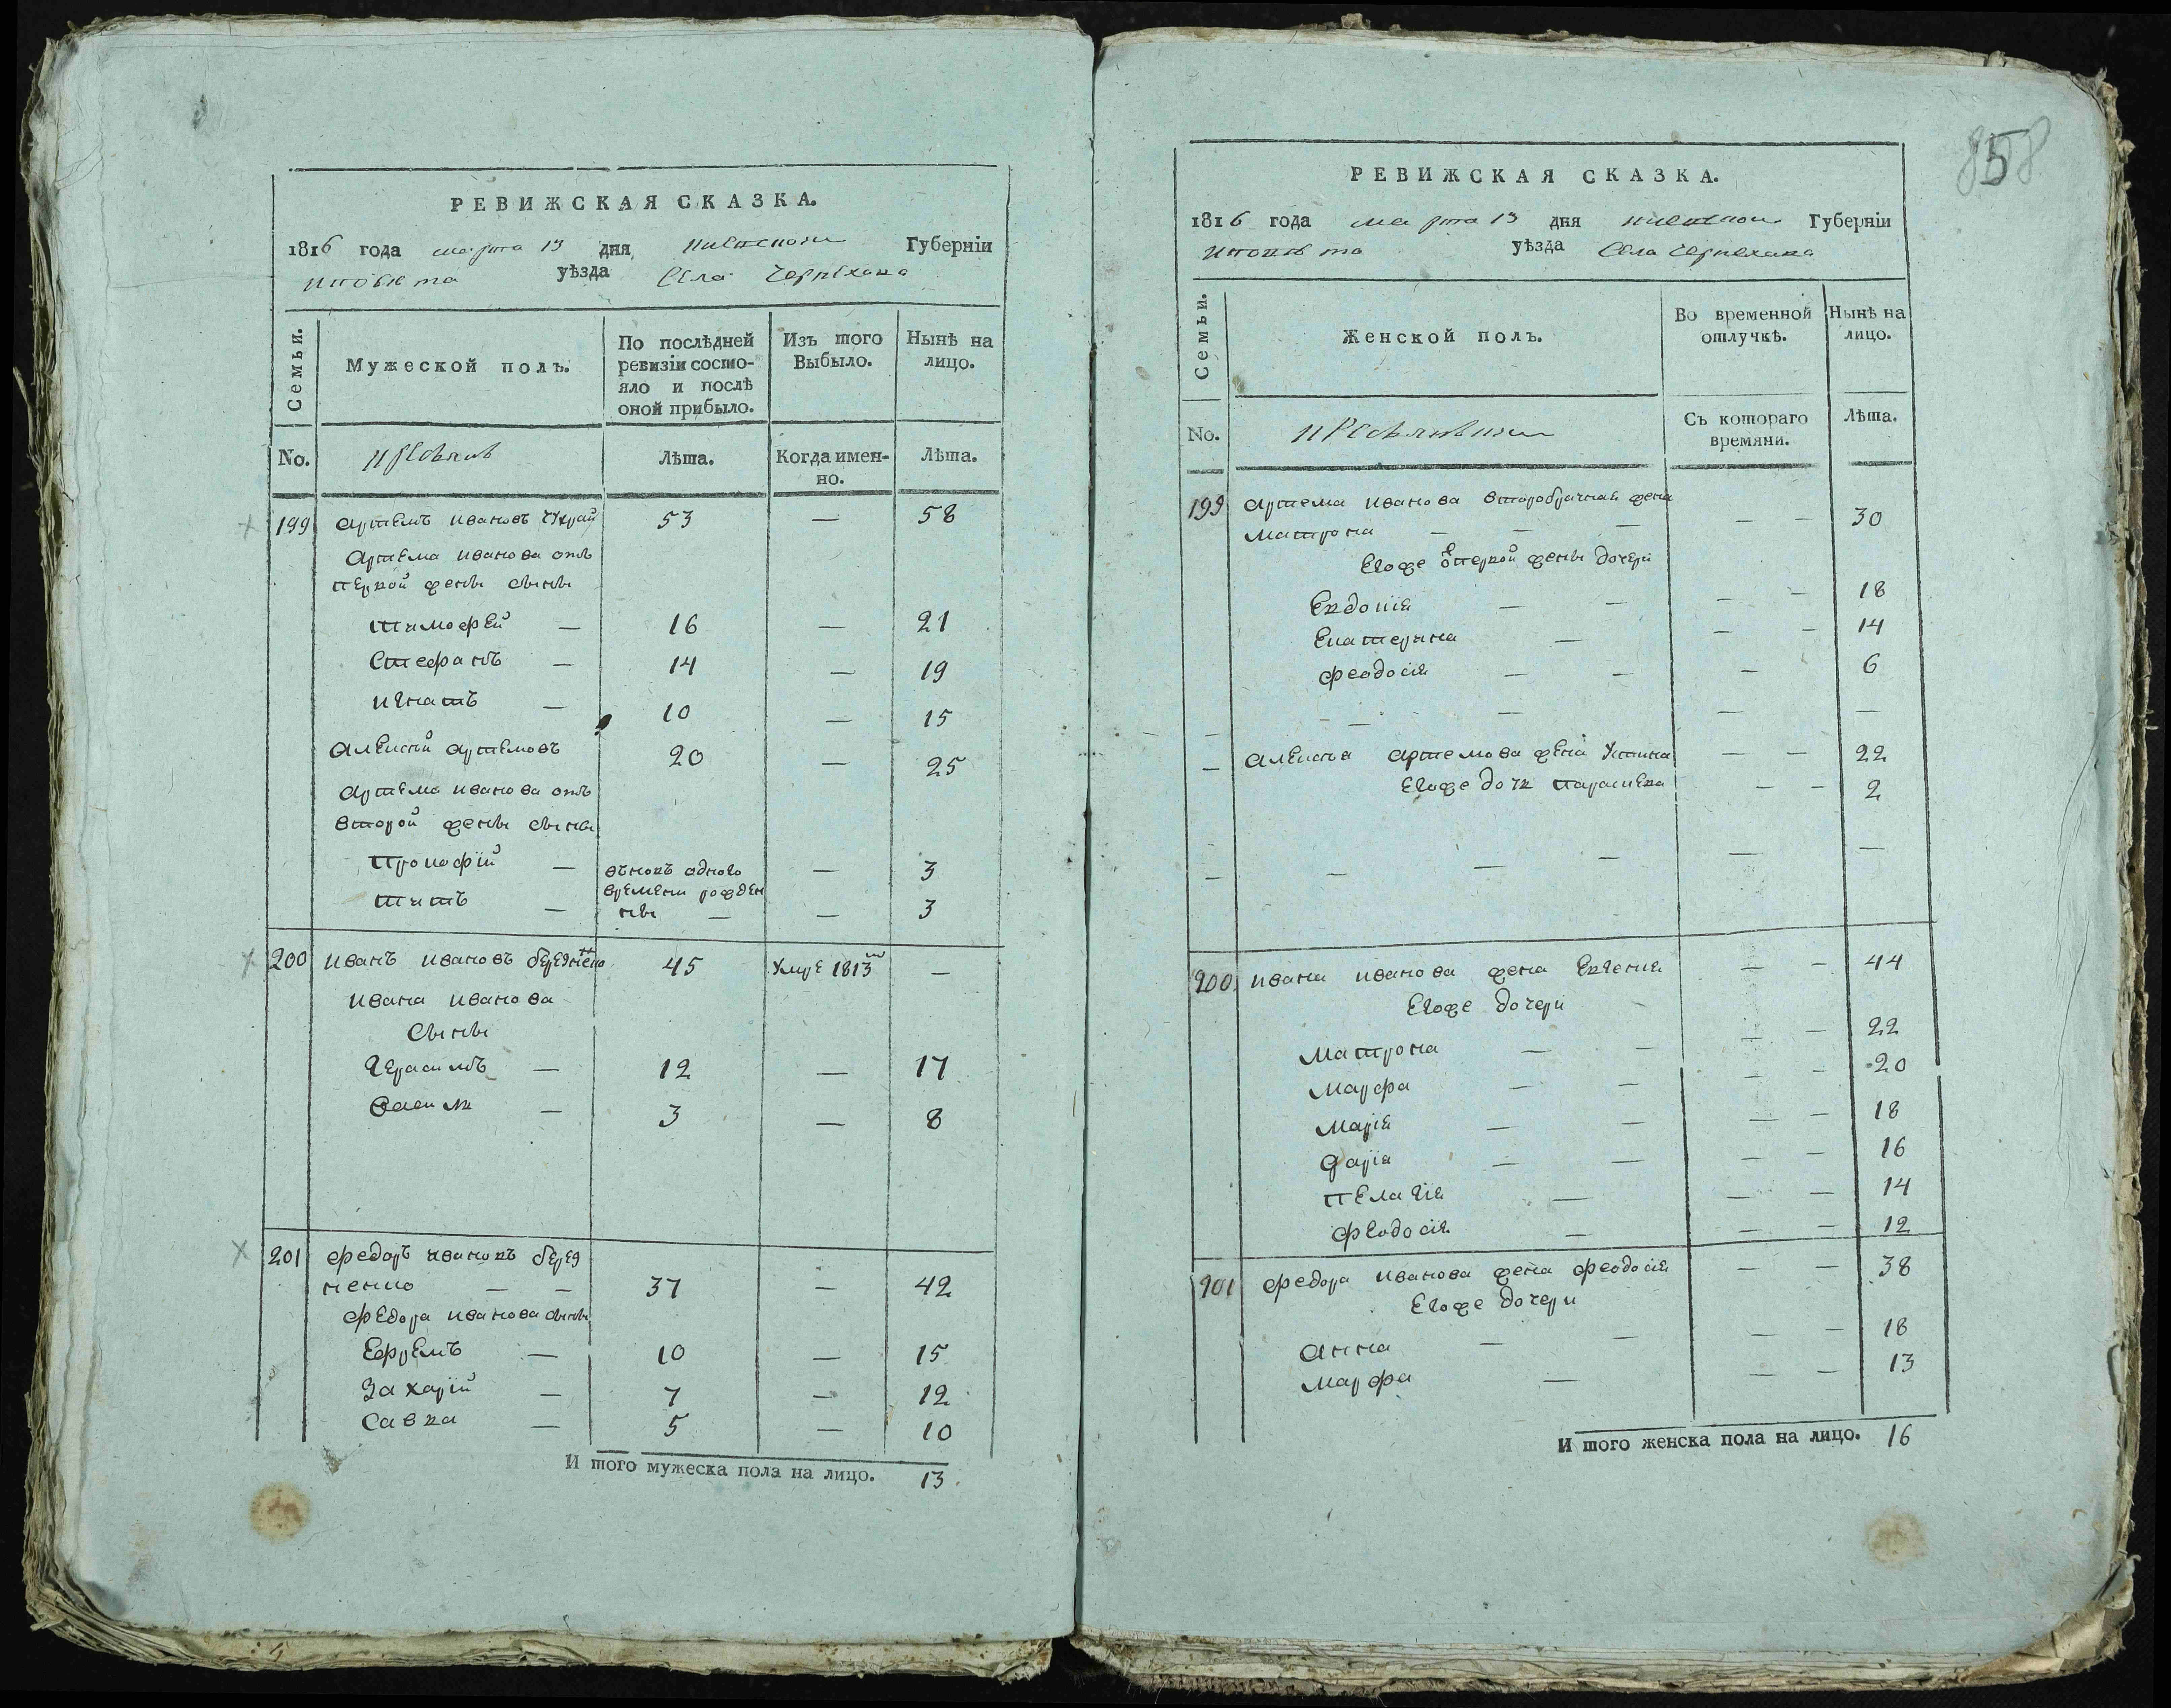 858
РЕВИЖСКАЯ СКАЗКА.
1816 года марта 13 дня Киевской Губерніи
и повѣта уѣзда Села Черпехана
Семьи.
Мужеской полъ.
По послѣдней ревизіи состо-
яло и послѣ
оной прибыло.
Изъ того
Выбыло.
Нынѣ на
лицо.
No.
Лѣта.
Когда имен-
но.
Лѣта.
199 Артемъ Ивановъ 53 — 58
Артема Иванова отъ
первой жены сыны
Тимофей — 16 — 21
Стефанъ — 14 — 19
Игнатъ — 10 — 15
Алексѣй Артемовъ 20 — 25
Артема Иванова отъ
второй жены сыны
Прокофій — 3
одного
времени рожден
ны
Титъ — — — 3
200 Иванъ Ивановъ 45 Умре 1813 —
Ивана Иванова
сыны
Герасимъ — 12 — 17
Василь — 3 — 8
201 Федоръ Ивановъ берез
ненко — — 37 — 42
Федора Иванова сыны
Ефремъ — 10 — 15
Захарій — 7 — 12
Савва — 5 — 10
И того мужеска пола на лицо. 13
РЕВИЖСКАЯ СКАЗКА.
1816 года марта 13 дня Киевской Губерніи
и повѣта уѣзда Села Черпехана
Семьи.
Женской полъ.
Во временной
отлучкѣ.
Нынѣ на
лицо.
No.
Съ котораго
времяни.
Лѣта.
199 Артема Иванова второбрачная жена
Матрона — — — — — 30
Егоже о первой жены дочери
Евдокія — — — — 18
Екатерина — — — 14
Феодосія — — — 6
— — — — —
— Алексѣя Артемова жена Устина — — 22
Егоже дочь Параскева — — 2
— — — — — —
200 Ивана Иванова жена Евгенія — — 44
Егоже дочери
Матрона — — — — 22
Марфа — — — — 20
Марія — — — — 18
Дарія — — — — 16
Пелагія — — — 14
Феодосія — — — 12
201 Федора Иванова жена Феодосія — — 38
Егоже дочери
Анна — — — — 18
Марфа — — — 13
И того женска пола на лицо. 16